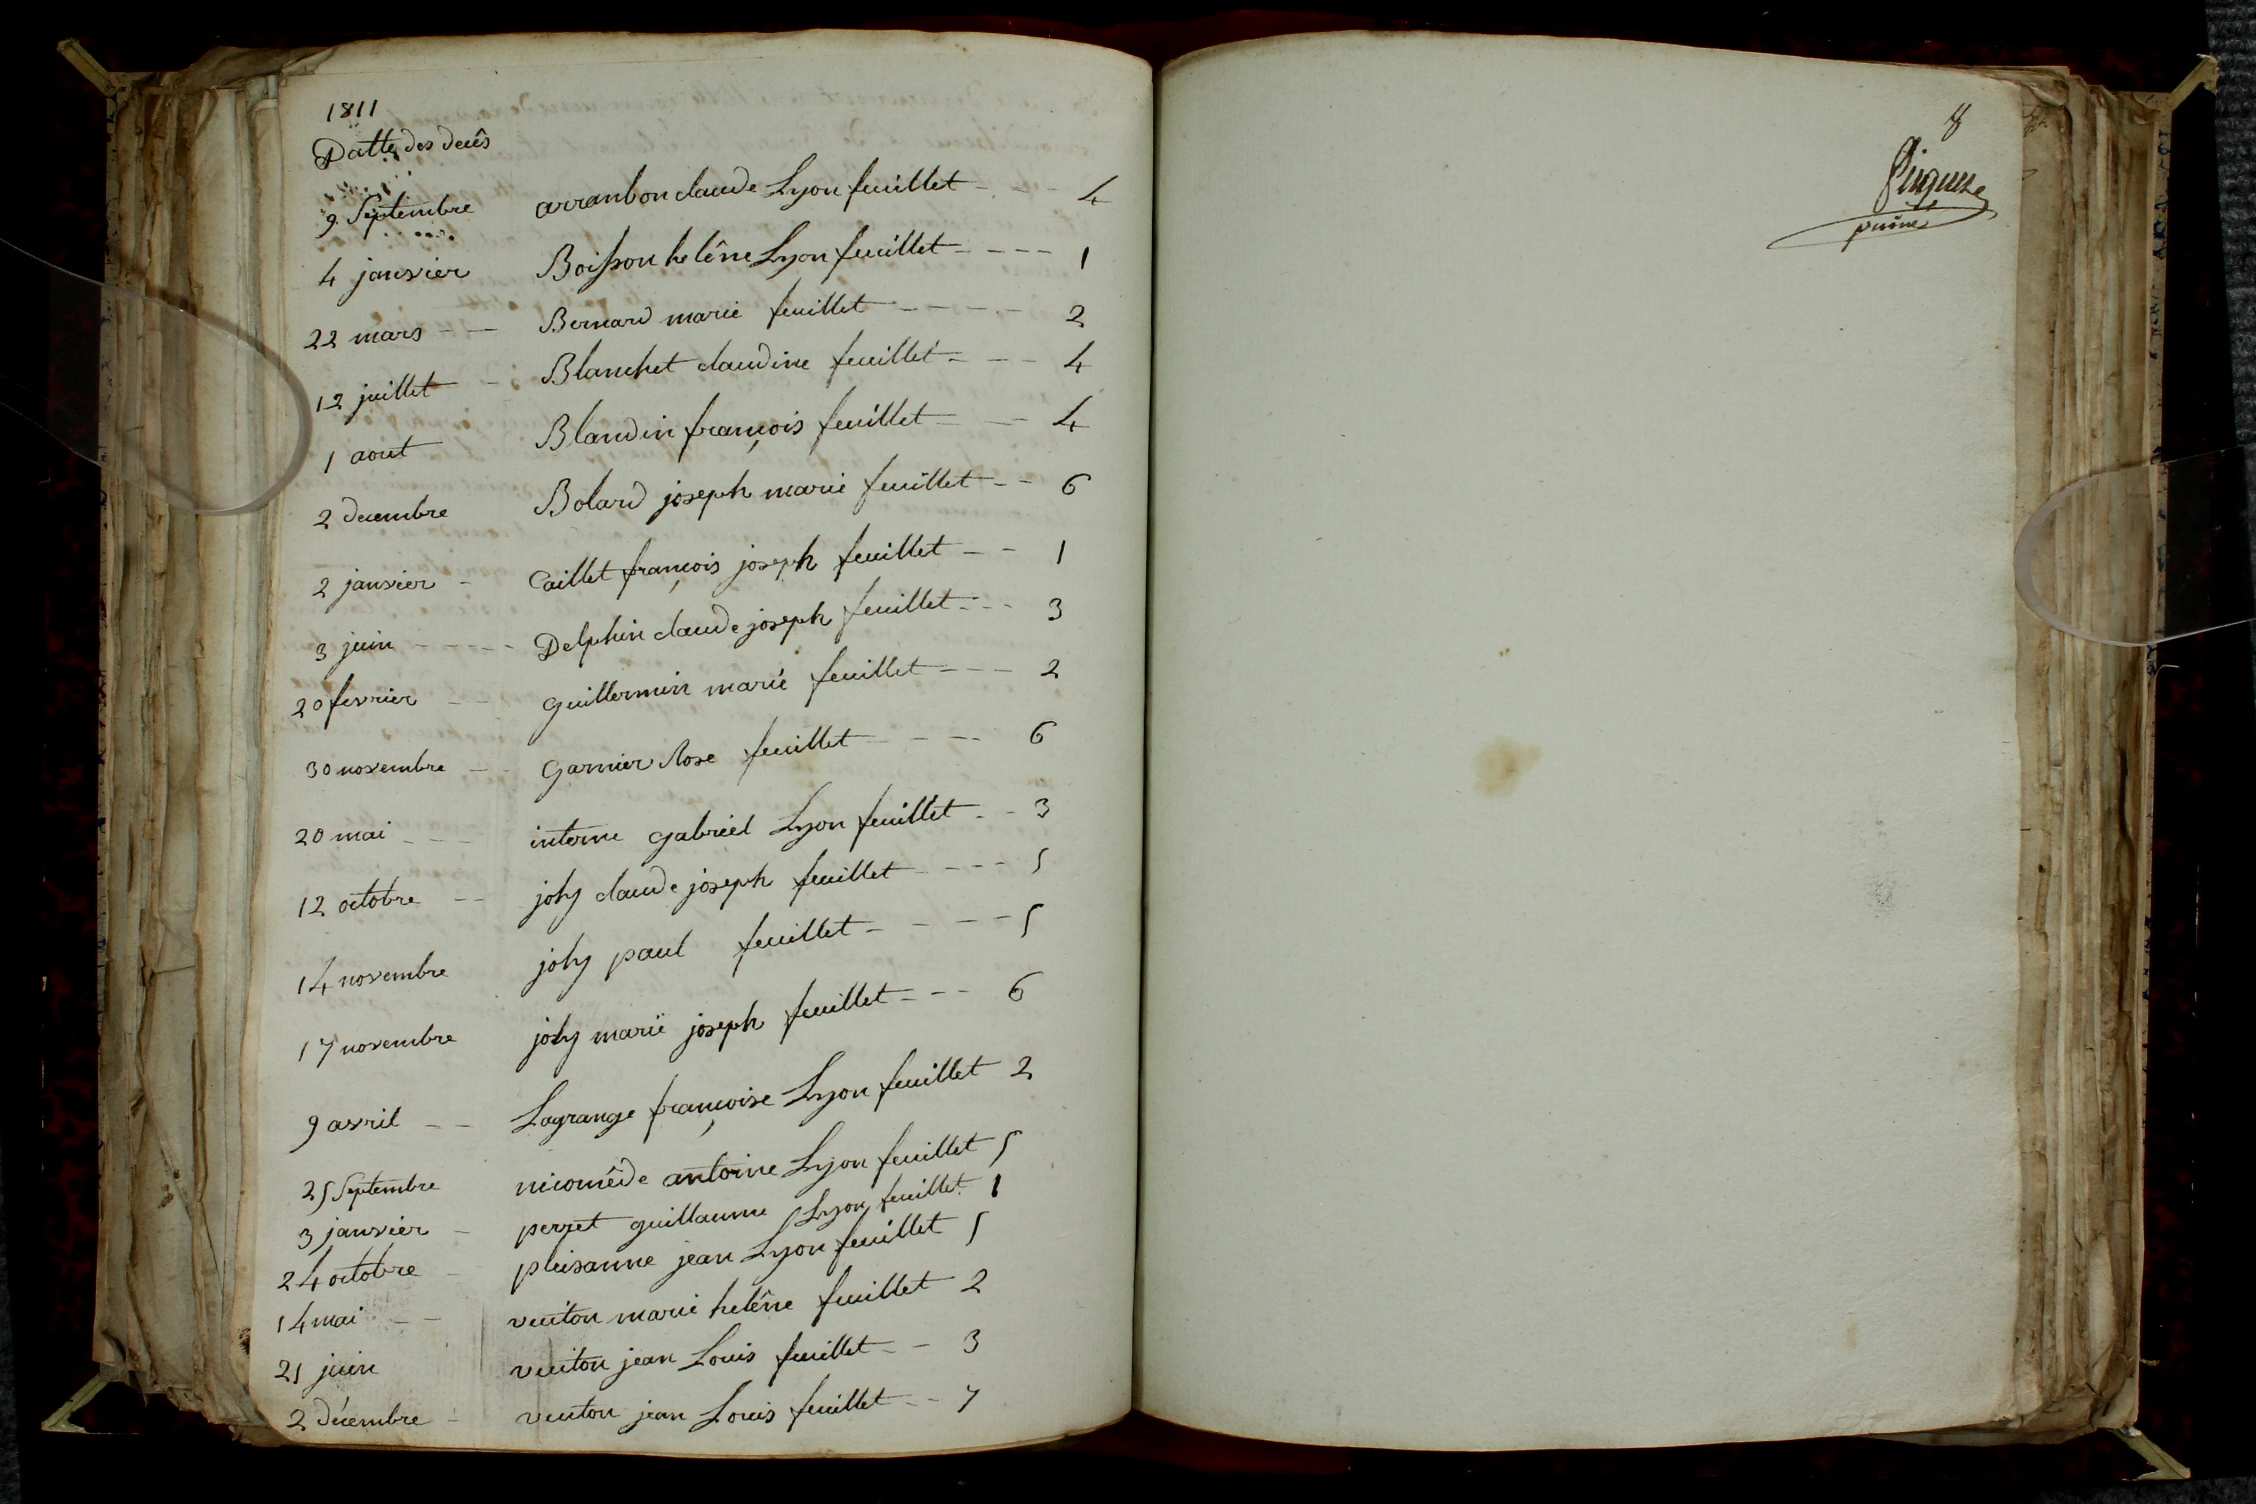 1811
Datte des decês
9 Septembre arranbon claude Lyon feuillet - - - 4
4 janvier Boisson helêne Lyon feuillet - - - - 1
22 mars - - Bernard marie feuillet - - - - - 2
12 juillet - Blanchet claudine feuillet - - - 4
1 aout Blandin françois feuillet - - - 4
2 decembre Bolard joseph marie feuillet - - 6
2 janvier - Caillet françois joseph feuillet - - 1
3 juin - - - - - Delphin claude joseph feuillet - - - 3
20 fevrier - - guillermin marie feuillet - - - 2
30 novembre - - garnier Rose feuillet - - - - 6
20 mai - - - interne gabriel Lyon feuillet - - 3
12 octobre - - joly claude joseph feuillet - - - - 5
14 novembre joly paul feuillet - - - - 5
17 novembre joly marie joseph feuillet - - - 6
9 avril - - Lagrange françoise Lyon feuillet 2
25 Septembre nicomêde antoine Lyon feuillet 5
3 janvier - perret guillaume Lyon feuillet 1
24 octobre - pleisanne jean Lyon feuillet 5
14 mai - - vuiton marie helêne feuillet 2
21 juin vuiton jean Louis feuillet - - 3
2 décembre - vuiton jean Louis feuillet - - 7
8
puiné